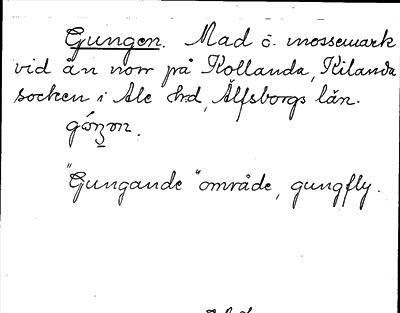 Gungen. Mad o. mossemark
vid ån norr på Kollanda, Kilanda
socken i Ale hd, Älfsborgs län.
"Gungande" område, gungfly.